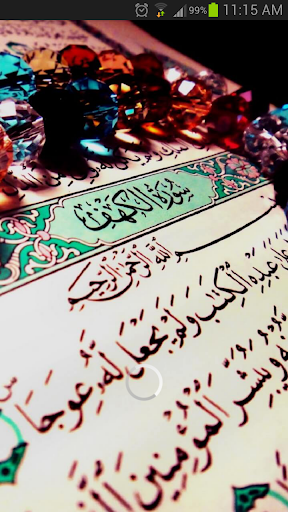 99% 11:15 AM
سورة الكهف
بسم الله الرحمن الرحيم
عبده الكتب ولم يجعل له عوجا
ويبشر المؤمنين